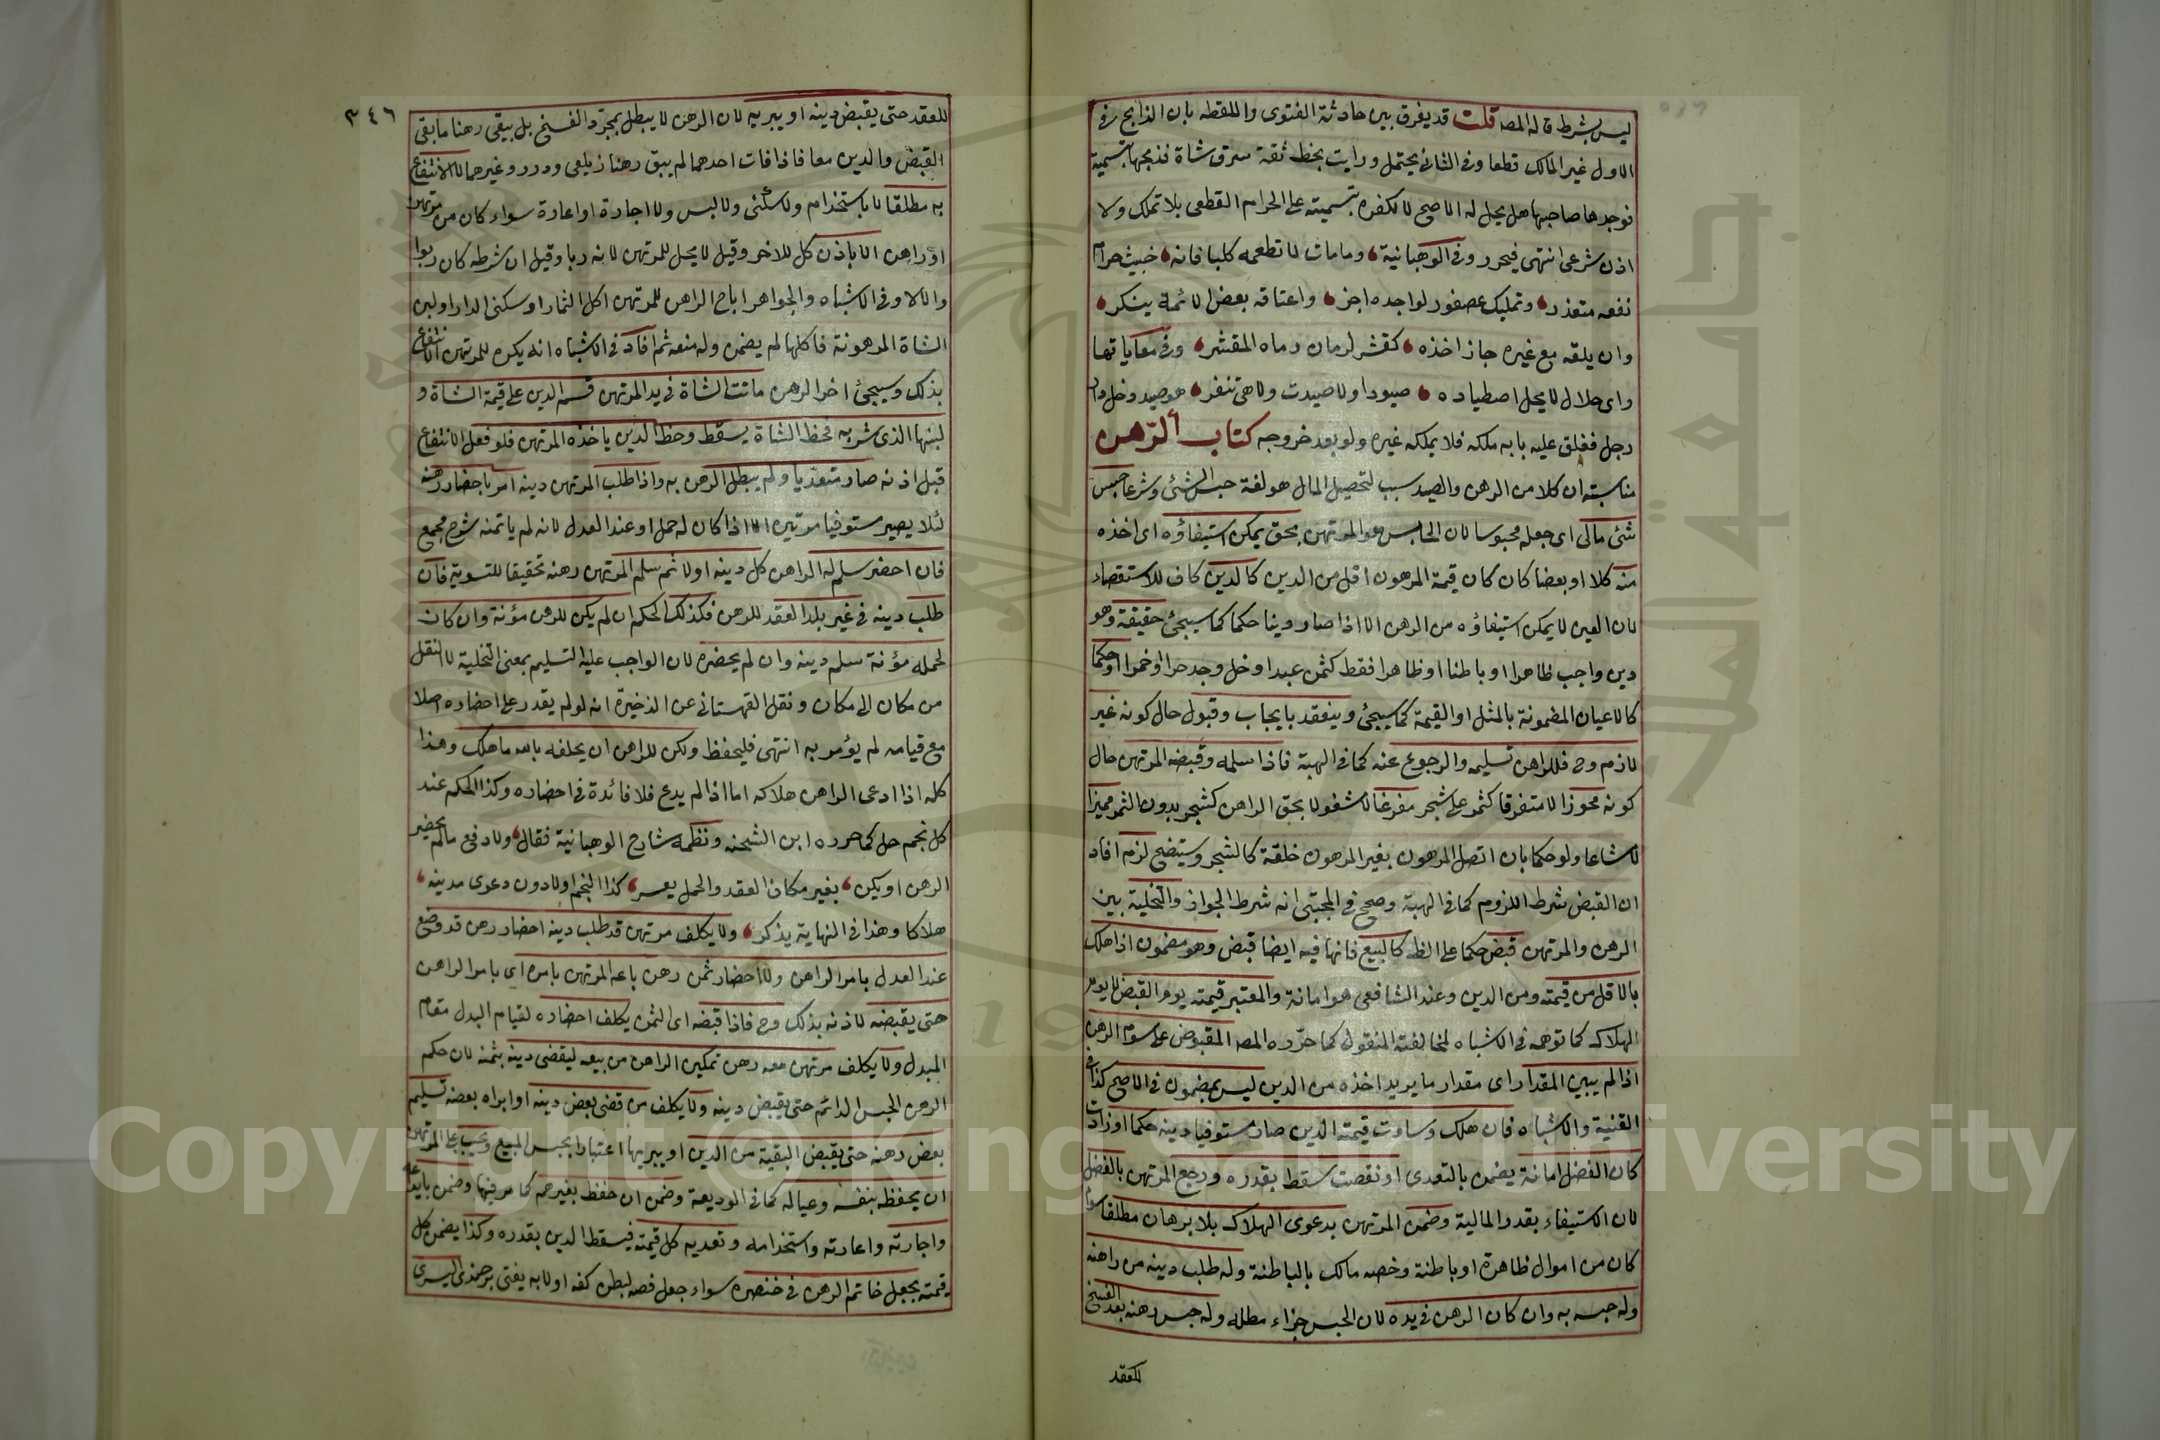 ليس بشرط قاله المصـ قلت قد يفرق بين حادثة الفتوى واللقطه بان الذابح فى
الاول غير المالك قطعا وفى الثانى يحتمل ورايت بخط ثقة سرق شاة فذبحها بتسمية
فوجدها صاحبها هل يحل له الاصح لا لكفره بتسميته على الحرام القطعى بلا تملك ولا
اذن شرعى انتهى فيحرر وفى الوهبانية وما مات لا تطعمه كلبا فانه خبيث حرام
نفعه متعذر وتمليك عصفور لواجده اجز واعتاقه بعض الائمة ينكر
وان يلقه مع غيره جاز اخذه كقشر لرمان رماه المقشر وفى معاياتها
واى حلال لا يحل اصطياده صيودا ولا صيدت ولا هى تنفر هو صيد دخل دار
رجل فغلق عليه بابه ملكه فلا يملكه غيره ولو بعد خروجه كتاب الرّهن
مناسبته ان كلا من الرهن والصيد سبب لتحصيل المال هو لغة حبس الشئ وشرعا حبس
شئ مالى اى جعله محبوسا لان الحابس هو المرتهن بحق يمكن استيفاؤه اى اخذه
منه كلا او بعضا كان كان قيمة المرهون اقل من الدين كالدين كاف للاستقصاء
لان العين لا يمكن استيفاؤه من الرهن الا اذا صار دينا حكما كما سيجئ حقيقة وهو
دين واجب ظاهرا وباطنا او ظاهرا فقط كثمن عبد او خل وجد حرا او خمرا او حكما
كالاعيان المضمونة بالمثل او القيمة كما سيجئ وينعقد بايجاب وقبول حال كونه غير
لازم وح فللراهن تسليمه والرجوع عنه كما فى الهبة فاذا سلمه وقبضه المرتهن حال
كونه محوزا لا متفرقا كثمر على شجر مفرغا لا مشغولا بحق الراهن كشجر بدون الثمر مميزا
لا مشاعا ولو حكما بان اتصل المرهون بغير المرهون خلقة كالشجر وسيتضح لزم افاد
ان القبض شرط اللزوم كما فى الهبة وصحح فى المجتبى انه شرط الجواز والتخلية بين
الرهن والمرتهن قبض حكما على الظـ كالبيع فانها فيه ايضا قبض وهو مضمون اذا هلك
بالاقل من قيمته ومن الدين وعند الشافعى هو امانة والمعتبر قيمته يوم القبض لا يوم
الهلاك كما توهمه فى الاشباه لمخالفته المنقول كما حرّره المصـ المقبوض على سوم الرهن
اذا لم يبين المقدار اى مقدار ما يريد اخذه من الدين ليس بمضمون فى الاصح كذا فى
القنية والاشباه فان هلك وساوت قيمته الدين صار مستوفيا دينه حكما او زادت
كان الفضل امانة يضمن بالتعدى او نقصت سقط بقدره ورجع المرتهن بالفضل
لان الاستيفاء بقدر المالية وضمن المرتهن بدعوى الهلاك بلا برهان مطلقا سواء
كان من اموال ظاهرة او باطنة وخصه مالك بالباطنة وله طلب دينه من راهنه
وله حبسه به وان كان الرهن فى يده لان الحبس جزاء مطله وله حبس رهنه بعد الفسخ
للعقد
٣٤٦
للعقد حتى يقبض دينه او يبريه لان الرهن لا يبطل بمجرد الفسخ بل يبقى رهنا ما بقى
القبض والدين معا فاذا فات احدهما لم يبق رهنا زيلعى ودرر وغيرهما لا الانتفاع
به مطلقا لا باستخدام ولا سكنى ولا لبس ولا اجارة او اعارة سواء كان من مرتهن
او راهن الا باذن كل للاخر وقيل لا يحل للمرتهن لانه ربا وقيل ان شرطه كان ربوا
والا لا وفى الاشباه والجواهر اباح الراهن للمرتهن اكل الثمار او سكنى الدار او لبن
الشاة المرهونة فاكلها لم يضمن وله منعه ثم افاد فى الاشباه انه يكره للمرتهن الانتفاع
بذلك وسيجئ اخر الرهن ماتت الشاة فى يد المرتهن قسم الدين على قيمة الشاة و
لبنها الذى شربه فحظ الشاة يسقط وحظ الدين ياخذه المرتهن فلو فعل الانتفاع
قبل اذنه صار متعديا ولم يبطل الرهن به واذا طلب المرتهن دينه امر باحضار رهنه
لئلا يصير مستوفيا مرتين الا اذا كان له حمل او عند العدل لانه لم ياتمنه شرح مجمع
فان احضر سلم له الراهن كل دينه اولا ثم سلم المرتهن رهنه تحقيقا للتسوية فان
طلب دينه فى غير بلد العقد للرهن فكذلك الحكم ان لم يكن للرهن مؤنة وان كان
لحمله مؤنة سلم دينه وان لم يحضره لان الواجب عليه التسليم بمعنى التخلية لا النقل
من مكان الى مكان ونقل القهستانى عن الذخيرة انه لو لم يقدر على احضاره اصلا
مع قيامه لم يؤمر به انتهى فليحفظ ولكن للراهن ان يحلفه بالله ما هلك وهذا
كله اذا ادعى الراهن هلاكه اما اذا لم يدع فلا فائدة فى احضاره وكذا الحكم عند
كل نجم حل كما حرره ابن الشحنه ونظمه شارح الوهبانية فقال ولا دفع ما لم يحضر
الرهن او يكن بغير مكان العقد والحمل يعسر كذا النجم او لا دون دعوى مدينه
هلاكا وهذا فى النهاية يذكر ولا يكلف مرتهن قد طلب دينه احضار رهن قد وضع
عند العدل بامر الراهن ولا احضار ثمن رهن باعه المرتهن بامره اى بامر الراهن
حتى يقبضه لاذنه بذلك وح فاذا قبضه اى الثمن يكلف احضاره لقيام البدل مقام
المبدل ولا يكلف مرتهن معه رهن تمكين الراهن من بيعه ليقضى دينه بثمنه لان حكم
الرهن الحبس الدائم حتى يقبض دينه ولا يكلف من قضى بعض دينه او ابراه بعضه تسليم
بعض رهنه حتى يقبض البقية من الدين او يبريها اعتبارا بحبس المبيع ويجب على المرتهن
ان يحفظه بنفسه وعياله كما فى الوديعة وضمن ان حفظ بغيرهم كما مر فيها وضمن بايداعه
واجارته واعارته واستخدامه وتعديه كل قيمته فيسقط الدين بقدره وكذا يضمن كل
قيمته بجعل خاتم الرهن فى خنصره سواء جعل فصه لبطن كفه او لا به يفتى برجندى اليسرى
Copyright © King Saud University